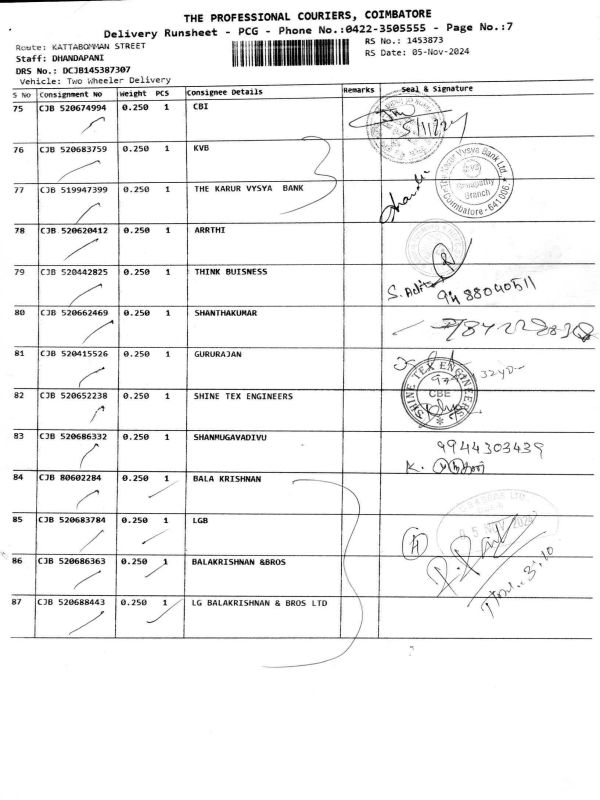 THE PROFESSIONAL COURIERS, COIMBATORE
Delivery Runsheet - PCG - Phone No.:0422-3505555 - Page No.:7
Route: KATTABOMMAN STREET
RS No.: 1453873
Staff: DHANDAPANI
RS Date: 05-Nov-2024
DRS No.: DCJB145387307
Vehicle: Two Wheeler Delivery
S No Consignment No Weight PCS Consignee Details Remarks Seal & Signature
75 CJB 520674994 0.250 1 CBI
76 CJB 520683759 0.250 1 KVB
The Karur Vysya Bank Ltd.
Ganapathy
Branch
Coimbatore - 641 006
77 CJB 519947399 0.250 1 THE KARUR VYSYA BANK
78 CJB 520620412 0.250 1 ARRTHI
79 CJB 520442825 0.250 1 THINK BUISNESS
9488040511
80 CJB 520662469 0.250 1 SHANTHAKUMAR
81 CJB 520415526 0.250 1 GURURAJAN
SHINE TEX ENGINEERS
CBE
82 CJB 520652238 0.250 1 SHINE TEX ENGINEERS
83 CJB 520686332 0.250 1 SHANMUGAVADIVU
9944303439
84 CJB 80602284 0.250 1 BALA KRISHNAN
85 CJB 520683784 0.250 1 LGB
05 NOV 2024
86 CJB 520686363 0.250 1 BALAKRISHNAN &BROS
87 CJB 520688443 0.250 1 LG BALAKRISHNAN & BROS LTD